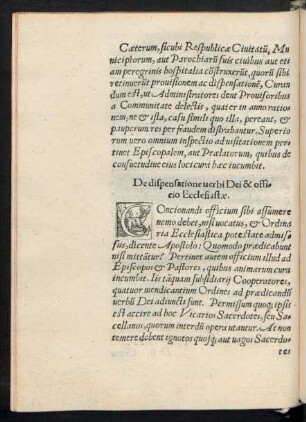 Cæterum, sicubi Respublicæ Ciuitatũ, Mu
nicipiorum, aut Parochiarũ suis ciuibus aut eti
am peregrinis hospitalia cõstruxerũt, quorũ sibi
retinuerũt prouisionem ac dispensationẽ, Curan
dum est, ut Administratores siue Prouisoribus
a Communitate delectis, quater in anno ratio
nem, ne & ista, casu simili quo illa, pereant, &
pauperum res per fraudem distrahantur. Superio
rum uero omnium inspectio ad uisitationem per
tinet Episcopalem, aut Prælatorum, quibus de
consuetudine eius loci cura hæc incumbit.
De dispensatione uerbi Dei & offi
cio Ecclesiastæ.
Concionandi officium sibi assumere
nemo debet, nisi uocatus, & Ordina
ria Ecclesiastica potestate admis
sus, dicente Apostolo: Quomodo prædicabunt
nisi mittātur? Pertinet autem officium illud ad
Episcopos & Pastores, quibus animarum cura
incumbit. Iis tãquam subsidiarij Cooperatores,
quatuor mendicantium Ordines ad prædicandũ
uerbũ Dei adiuncti sunt. Permissum quoq; ipsis
est accire ad hoc Vicarios Sacerdotes, seu Sa
cellanos, quorum interdũ opera utantur. At non
temere debent ignotos quosq; aut uagos Sacerdo-
tes